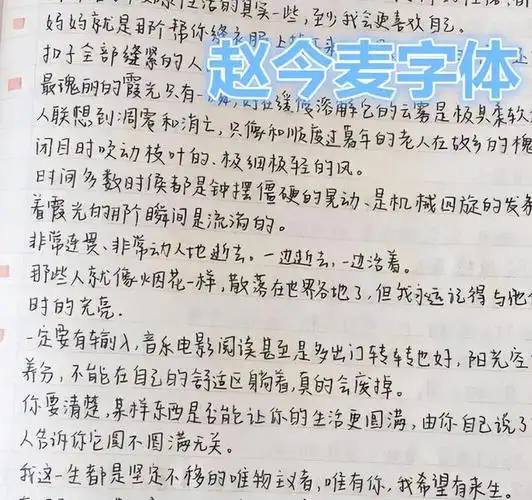 生活的真实一些,至少我会更喜欢自己。
妈妈就是那个帮你缝衣服上掉下来
扣子全部缝紧的人
赵今麦字体
最瑰丽的霞光只有一瞬,而在缓缓溶解它的云雾是极具柔软
人联想到凋零和消亡,只像和顺度过暮年的老人在故乡的槐
闭目时吹动枝叶的、极细极轻的风。
时间多数时候都是钟摆僵硬的晃动、是机械回旋的发条
着霞光的那个瞬间是流淌的。
非常连贯、非常动人地逝去。一边逝去,一边活着。
那些人就像烟花一样,散落在世界各地了,但我永远记得与他
时的光亮.
一定要有输入,音乐电影阅读甚至是多出门转转也好,阳光空
养分,不能在自己的舒适区躺着,真的会废掉。
你要清楚,某样东西是否能让你的生活更圆满,由你自己说了
人告诉你它圆不圆满无关。
我这一生都是坚定不移的唯物主义者,唯有你,我希望有来生。